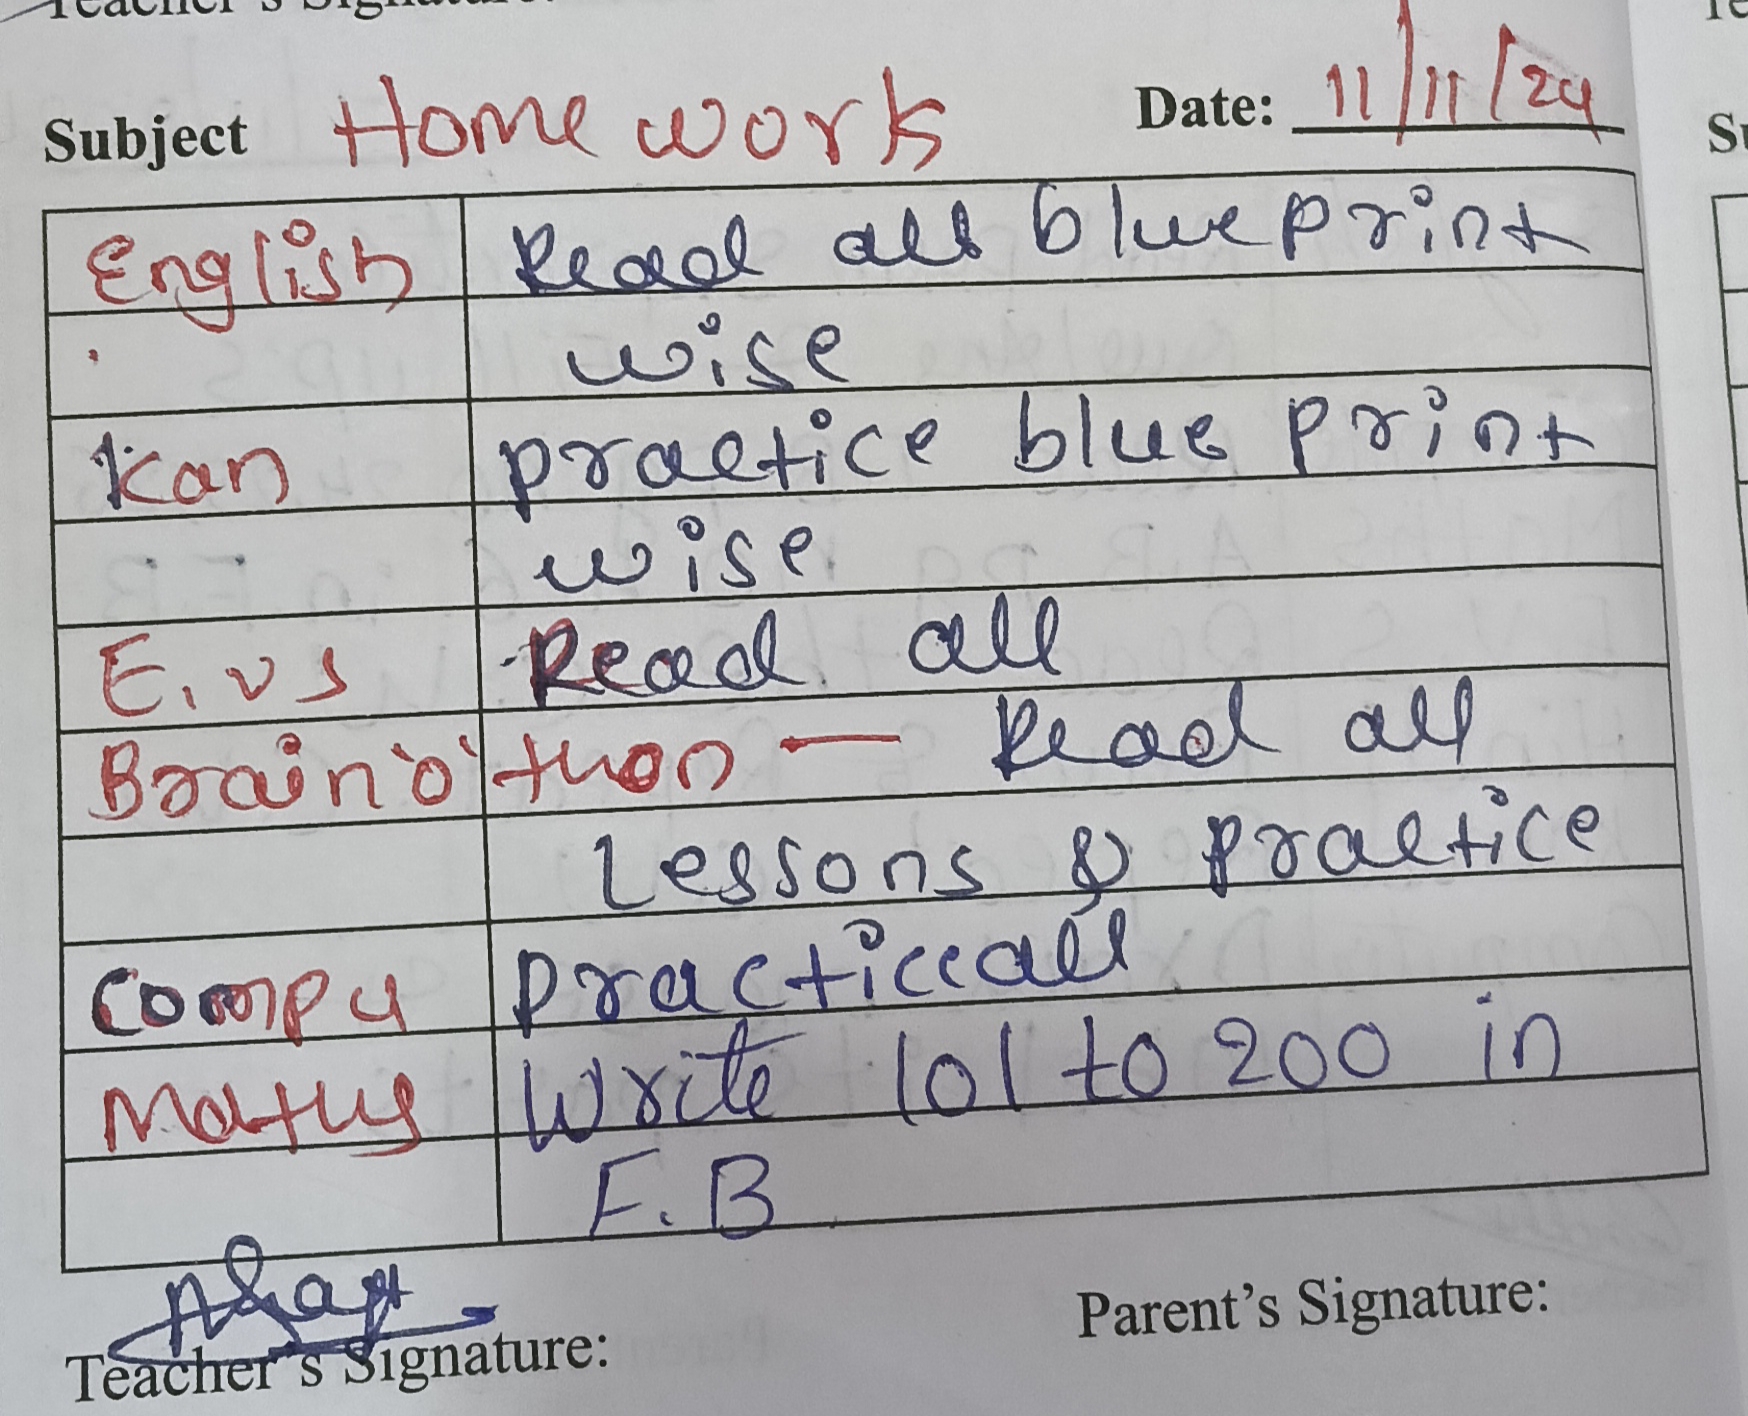 Teacher's Signature:
Subject Home work Date: 11/11/24
English Read all blue print
wise
Kan practice blue print
wise
E.vs Read all
Brain'o'thon — Read all
Lessons & practice
Compu practice all
Maths Write 101 to 200 in
F.B
Teacher's Signature: Parent's Signature: